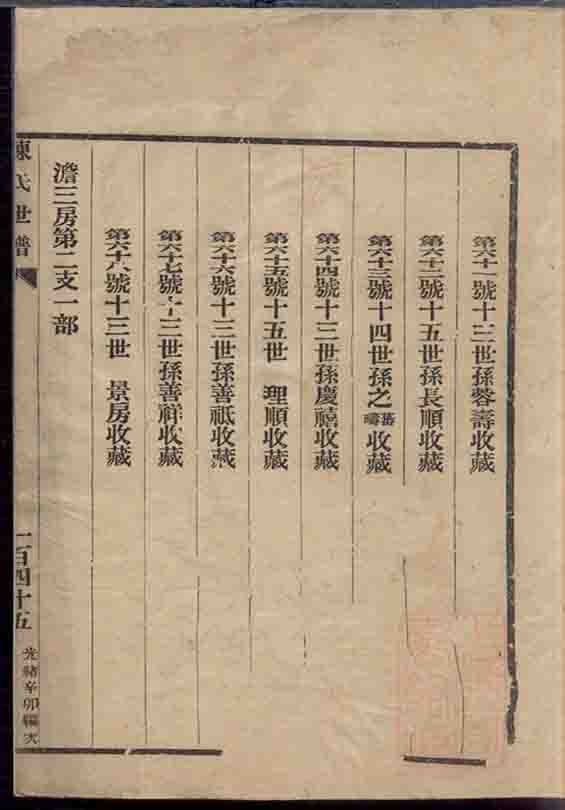 第六十一號十三世孫蓉壽收藏
第六十二號十五世孫長順收藏
第六十三號十四世孫之蕃疇收藏
第六十四號十三世孫慶禧收藏
第六十五號十五世 理順收藏
第六十六號十三世孫善祇收藏
第六十七號十三世孫善祥收藏
第六十八號十三世 景房收藏
澹三房第二支一部
陳氏世譜
一百四十五
光緒辛卯編次